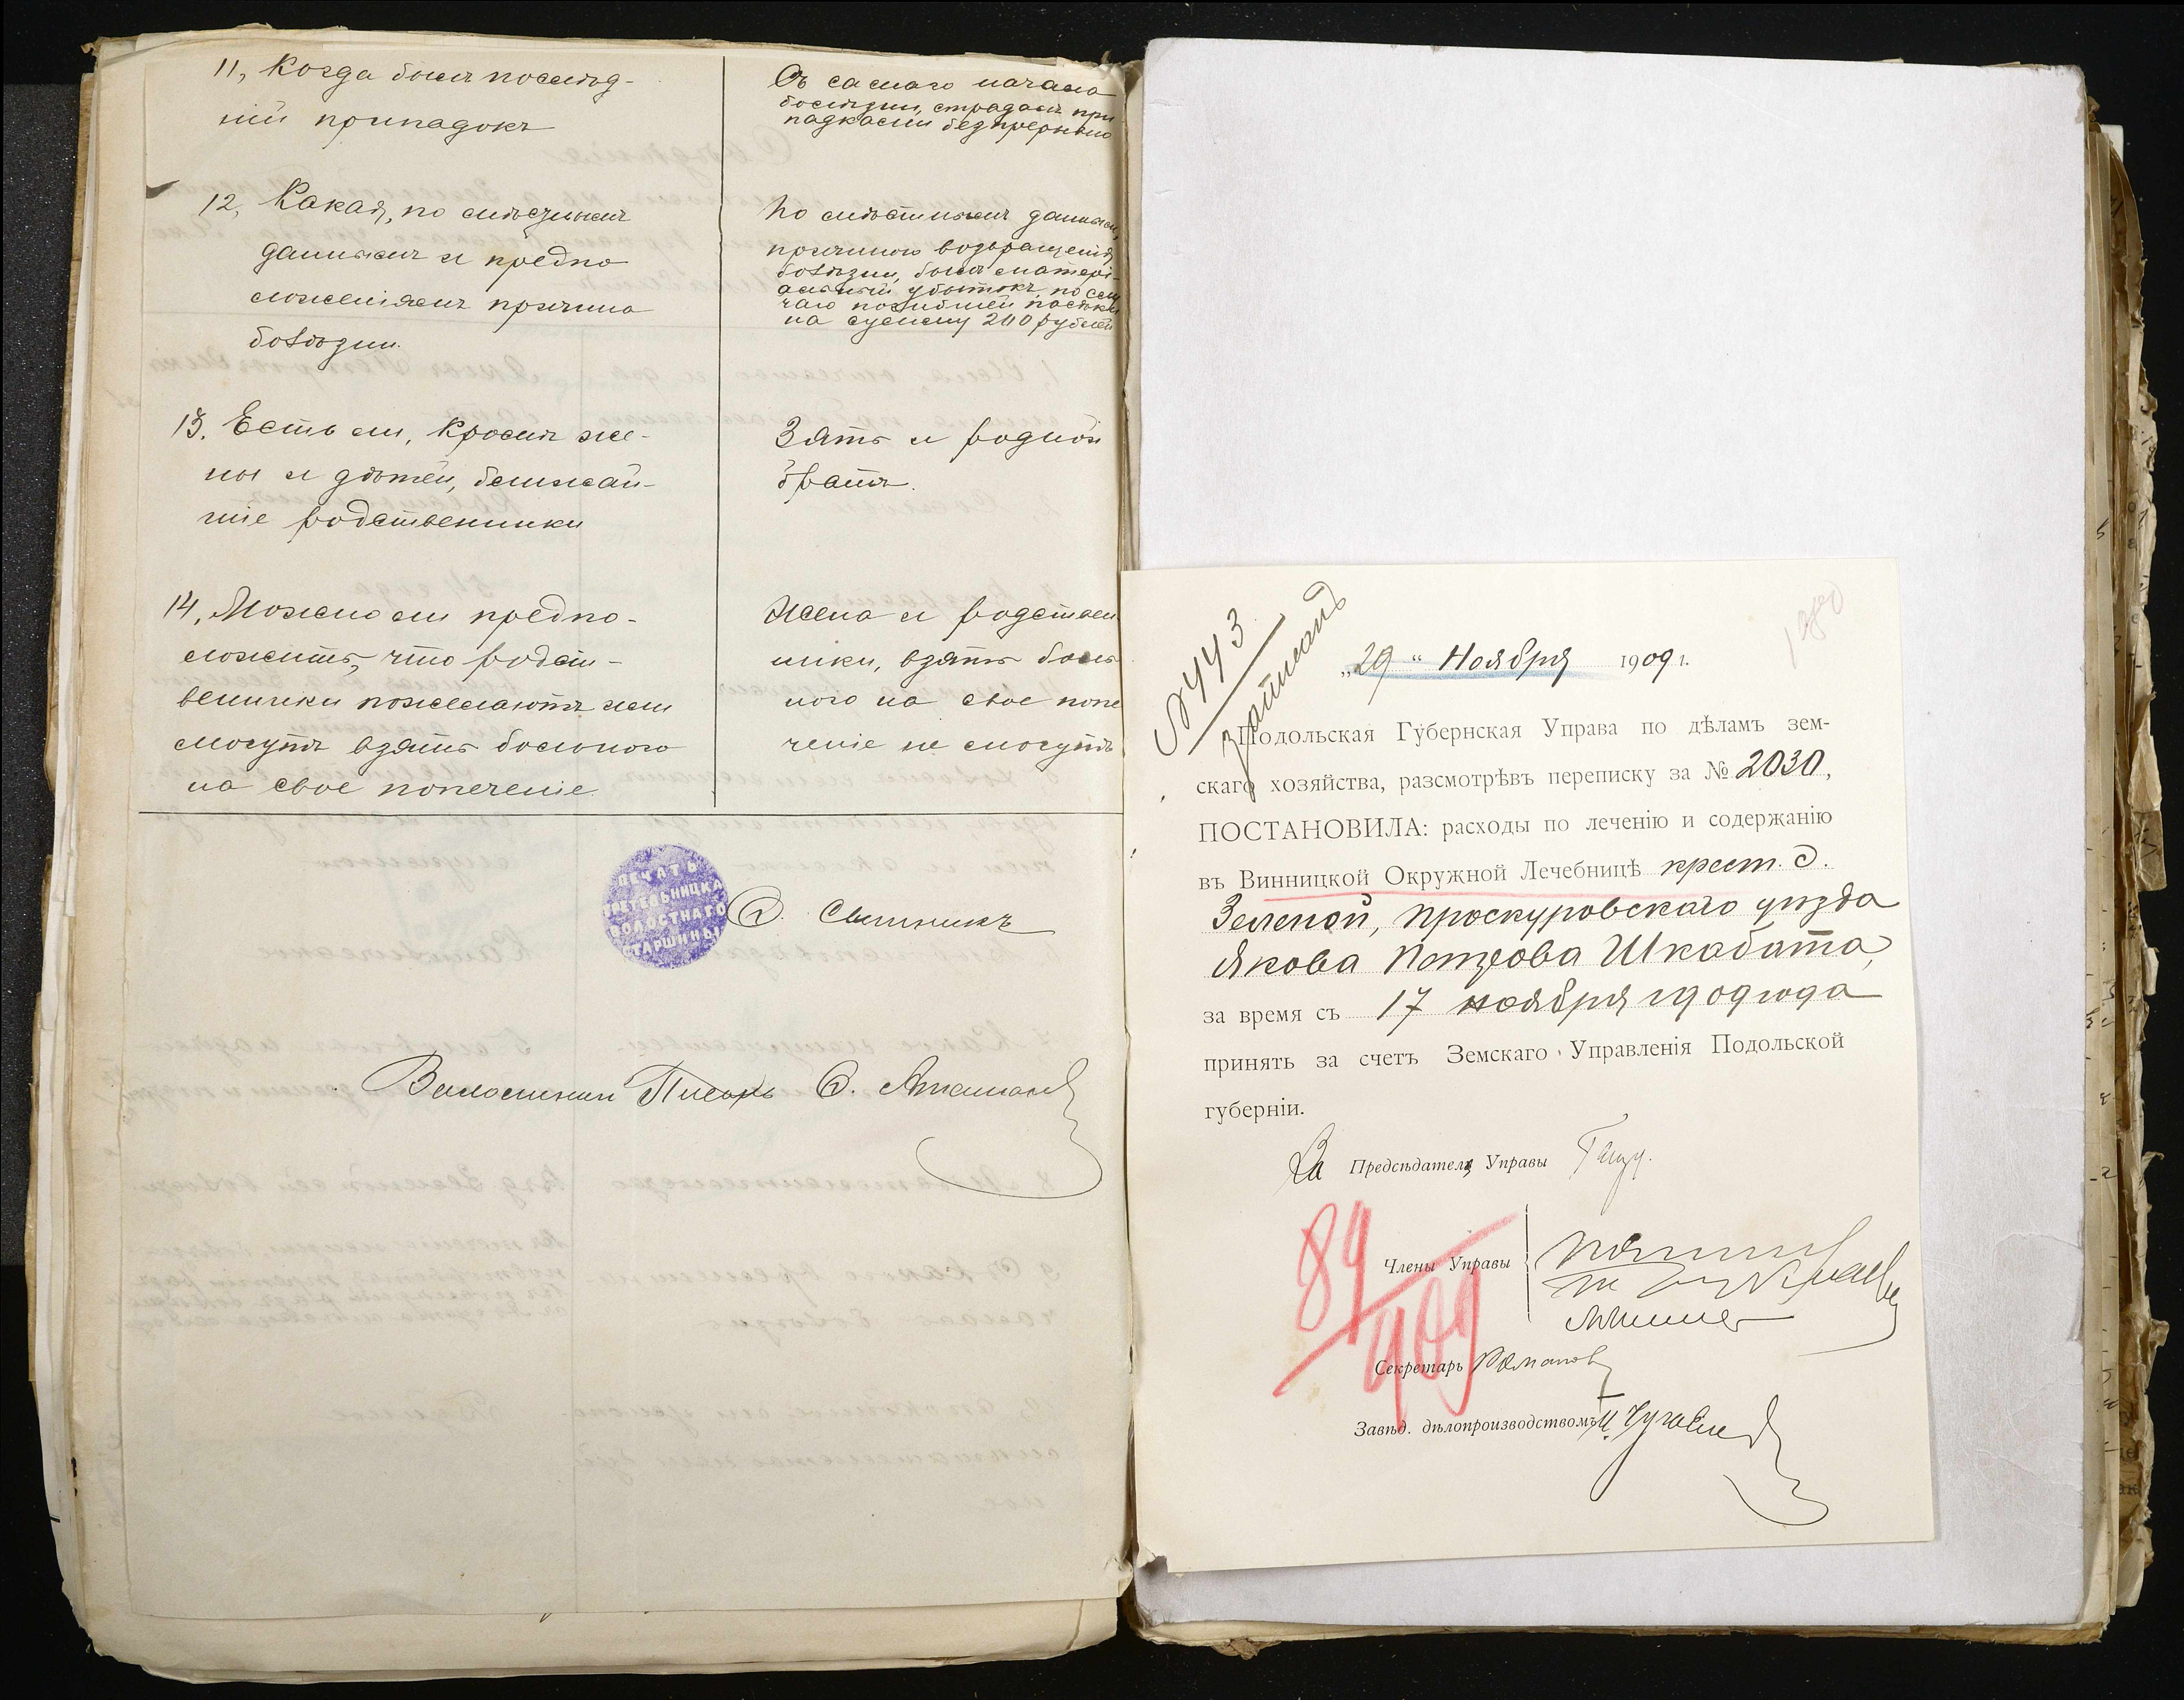 11, Когда былъ послѣд-
ній припадокъ
Съ самаго начала
болѣзни, страдалъ при
падками безпрерывно
12, Какая, по мѣстнымъ
даннымъ и предпо
ложеніямъ причина
болѣзни.
По мѣстнымъ даннымъ,
причиною возвращенія
болѣзни, былъ матері-
альный убытокъ, по слу
чаю погибшей пасѣки
на сумму 200 рублей
13. Есть ли, кромѣ же-
ны и дѣтей, ближай-
шіе родственники
Зять и родной
братъ.
14, Можно ли предпо-
ложить, что родст-
венники пожелаютъ или
могутъ взять больного
на свое попеченіе
Жена и родствен
ники, взять боль
ного на свое попе
ченіе не могутъ
ПЕЧАТЬ
ВОЛОСТНАГО
СТАРШИНЫ
Волостной Писарь
№ 443
"29" Ноября 1909 г.
Подольская Губернская Управа по дѣламъ зем-
скаго хозяйства, разсмотрѣвъ переписку за № 2030,
ПОСТАНОВИЛА: расходы по леченію и содержанію
въ Винницкой Окружной Лечебницѣ крест. д.
Зеленой, Проскуровскаго уѣзда
Якова Петрова Шкабата,
за время съ 17 ноября 1909 года
принять за счетъ Земскаго Управленія Подольской
губерніи.
За Предсѣдателя Управы
Члены Управы
89/909
Секретарь Романов
Завѣд. дѣлопроизводствомъ